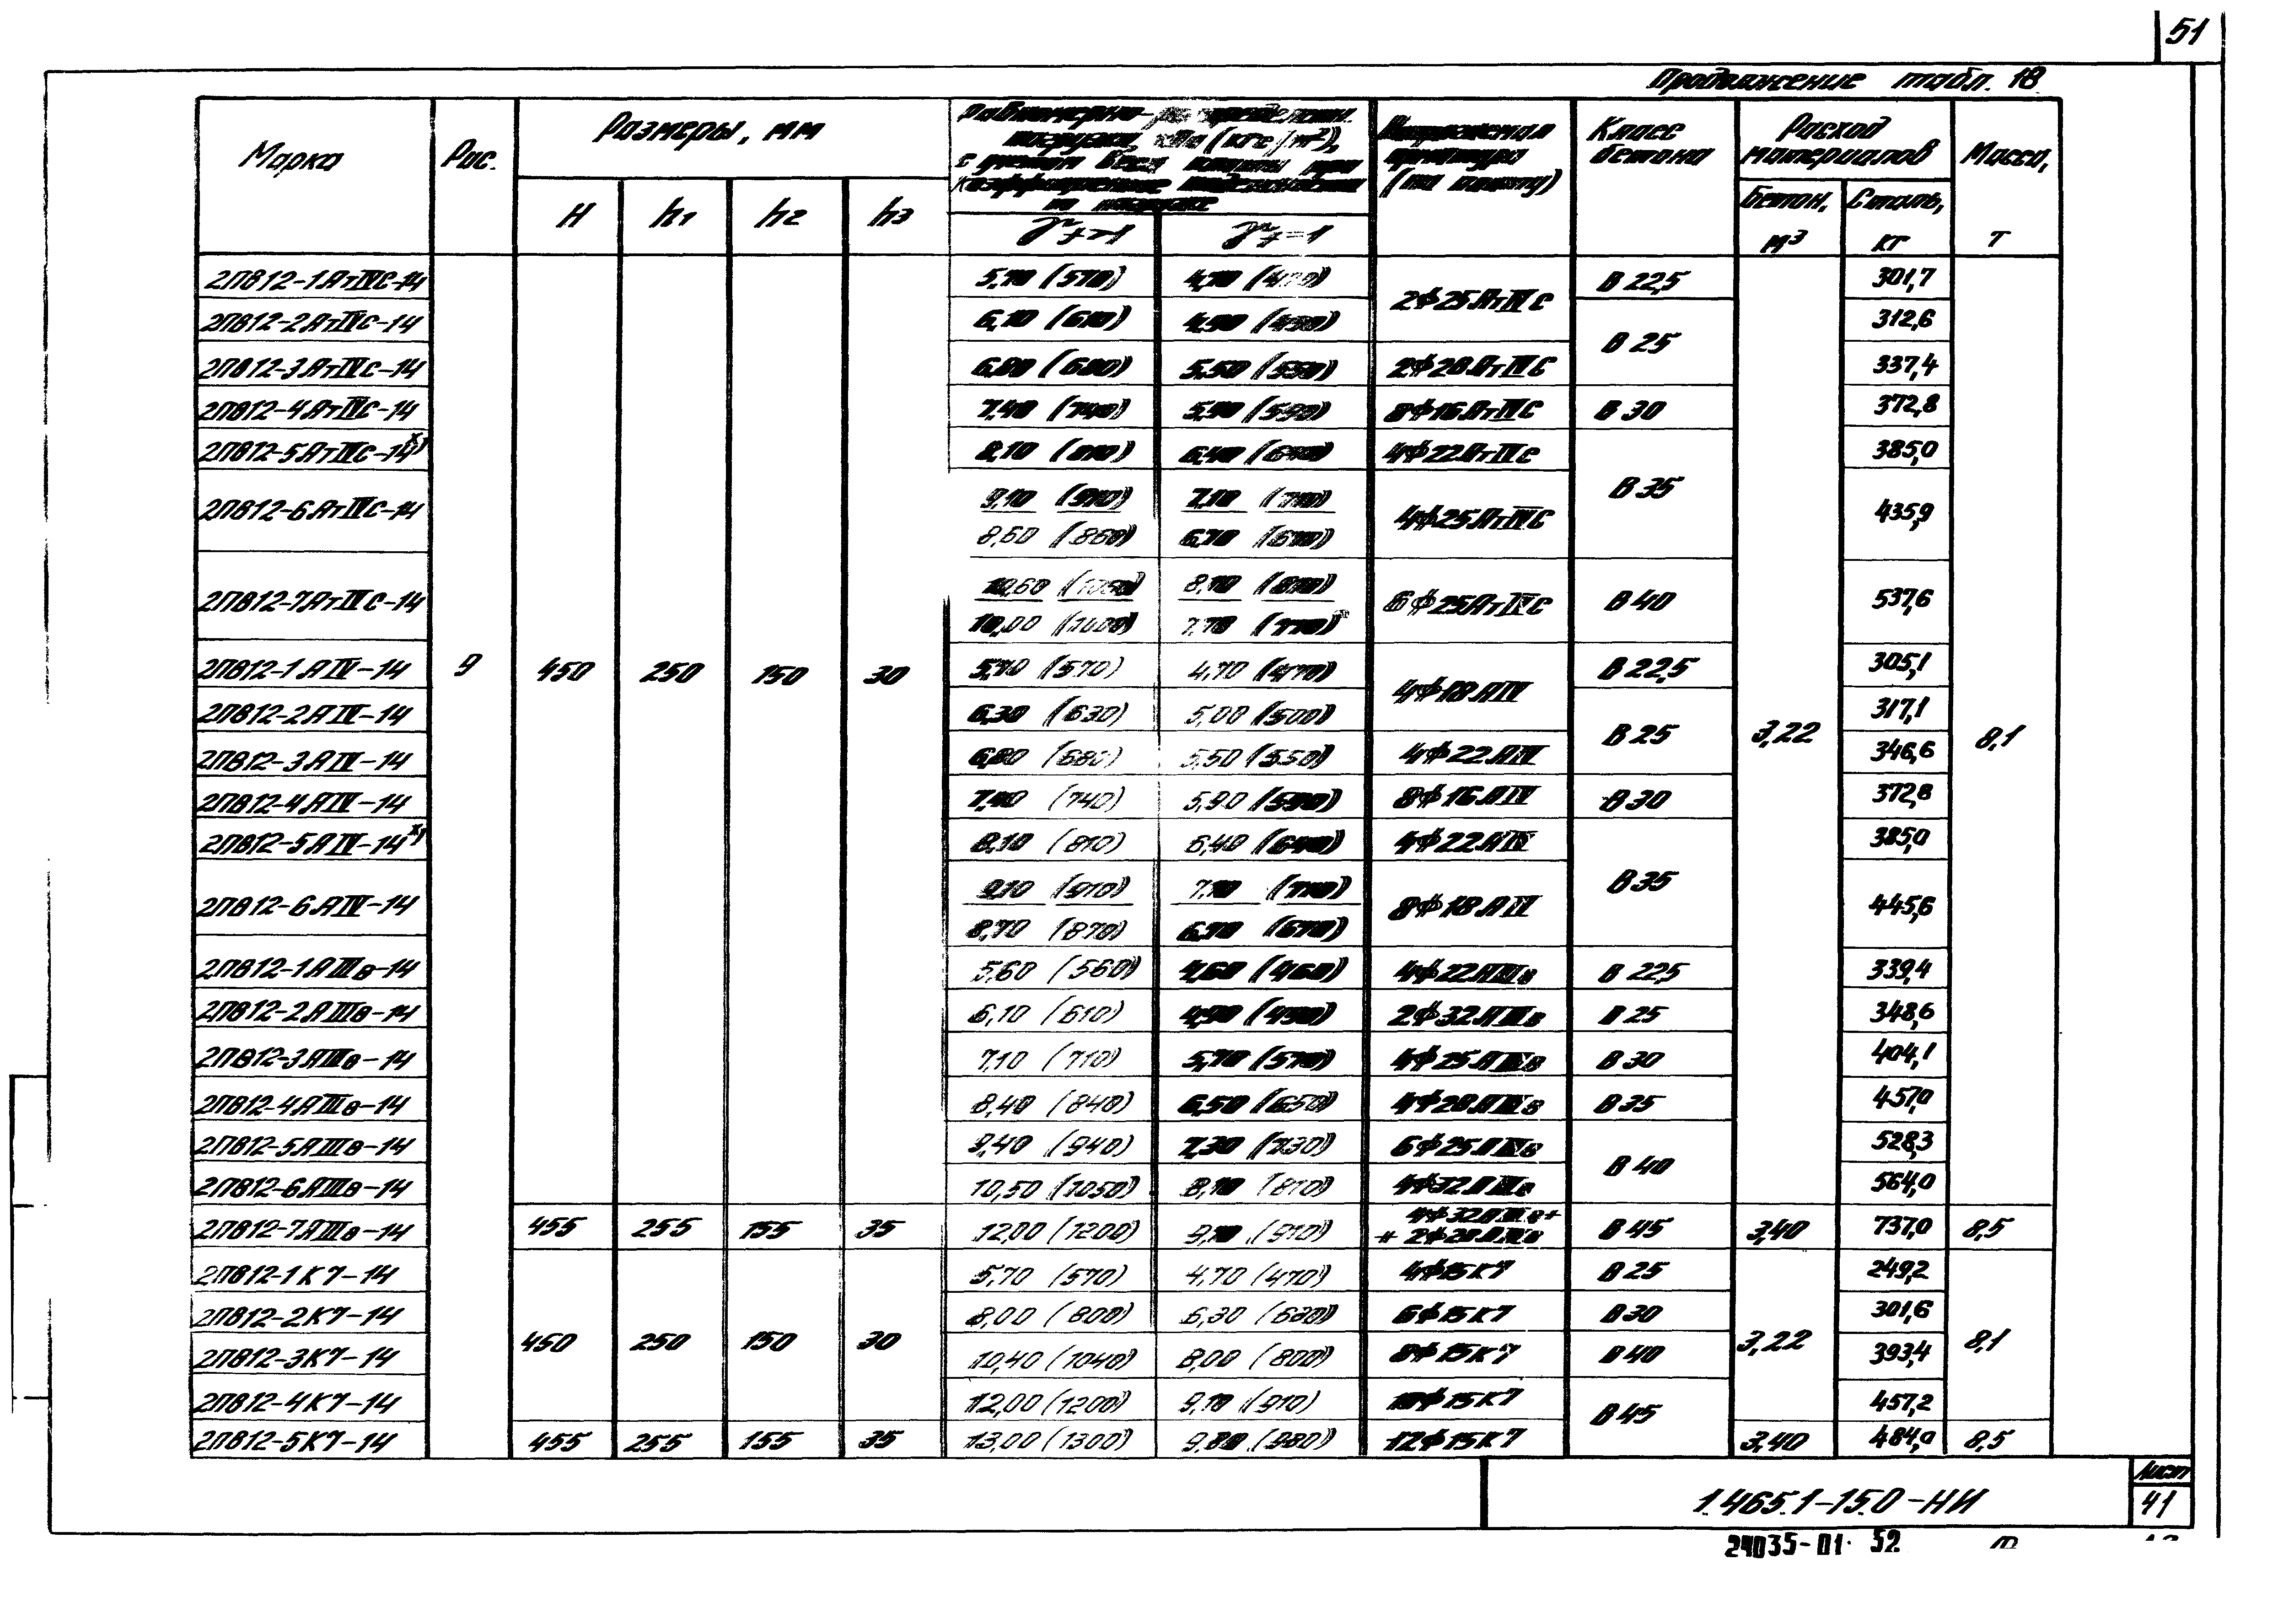 51
Продолжение табл. 18
Марка Рис. Размеры, мм Равномерно-распределенн. Напрягаемая Класс Расход Масса,
нагрузка, кПа (кгс/м²), арматура бетона материалов
с учетом веса плиты при (на плиту)
коэффициенте надежности
по нагрузке
H h1 h2 h3 Бетон, Сталь,
γf>1 γf=1 м3 кг т
2ПВ12-1АтIVС-14 5,70 (570) 4,70 (470) 2ф25АтIVС В 22,5 301,7
2ПВ12-2АтIVС-14 6,10 (610) 4,90 (490) В 25 312,6
2ПВ12-3АтIVС-14 6,80 (680) 5,50 (550) 2ф28АтIVС 337,4
2ПВ12-4АтIVС-14 7,40 (740) 5,90 (590) 8ф16АтIVС В 30 372,8
2ПВ12-5АтIVС-14х) 8,10 (810) 6,40 (640) 4ф22АтIVС В 35 385,0
2ПВ12-6АтIVС-14 9,10 (910) 7,10 (710) 4ф25АтIVС 435,9
8,60 (860) 6,70 (670)
2ПВ12-7АтIVС-14 10,60 (1060) 8,10 (810) 6ф25АтIVС В 40 537,6
10,00 (1000) 7,70 (770)
2ПВ12-1АIV-14 9 450 250 150 30 5,70 (570) 4,70 (470) 4ф18АIV В 22,5 305,1
2ПВ12-2АIV-14 6,30 (630) 5,00 (500) В 25 3,22 317,1 8,1
2ПВ12-3АIV-14 6,80 (680) 5,50 (550) 4ф22АIV 346,6
2ПВ12-4АIV-14 7,40 (740) 5,90 (590) 8ф16АIV В 30 372,8
2ПВ12-5АIV-14х) 8,10 (810) 6,40 (640) 4ф22АIV В 35 385,0
2ПВ12-6АIV-14 9,10 (910) 7,10 (710) 8ф18АIV 445,6
8,70 (870) 6,70 (670)
2ПВ12-1АIIIв-14 5,60 (560) 4,60 (460) 4ф22АIIIв В 22,5 339,4
2ПВ12-2АIIIв-14 6,10 (610) 4,90 (490) 2ф32АIIIв В 25 348,6
2ПВ12-3АIIIв-14 7,10 (710) 5,70 (570) 4ф25АIIIв В 30 404,1
2ПВ12-4АIIIв-14 8,40 (840) 6,50 (650) 4ф28АIIIв В 35 457,0
2ПВ12-5АIIIв-14 9,40 (940) 7,30 (730) 6ф25АIIIв В 40 528,3
2ПВ12-6АIIIв-14 10,50 (1050) 8,10 (810) 4ф32АIIIв 564,0
2ПВ12-7АIIIв-14 455 255 155 35 12,00 (1200) 9,10 (910) 4ф32АIIIв+ В 45 3,40 737,0 8,5
+ 2ф28АIIIв
2ПВ12-1К7-14 5,70 (570) 4,70 (470) 4ф15К7 В 25 249,2
2ПВ12-2К7-14 8,00 (800) 6,30 (630) 6ф15К7 В 30 301,6
2ПВ12-3К7-14 450 250 150 30 10,40 (1040) 8,00 (800) 8ф15К7 В 40 3,22 393,4 8,1
2ПВ12-4К7-14 12,00 (1200) 9,10 (910) 10ф15К7 В 45 457,2
2ПВ12-5К7-14 455 255 155 35 13,00 (1300) 9,80 (980) 12ф15К7 3,40 484,0 8,5
Лист
1.465.1-15.0-НИ 41
24035-01 52